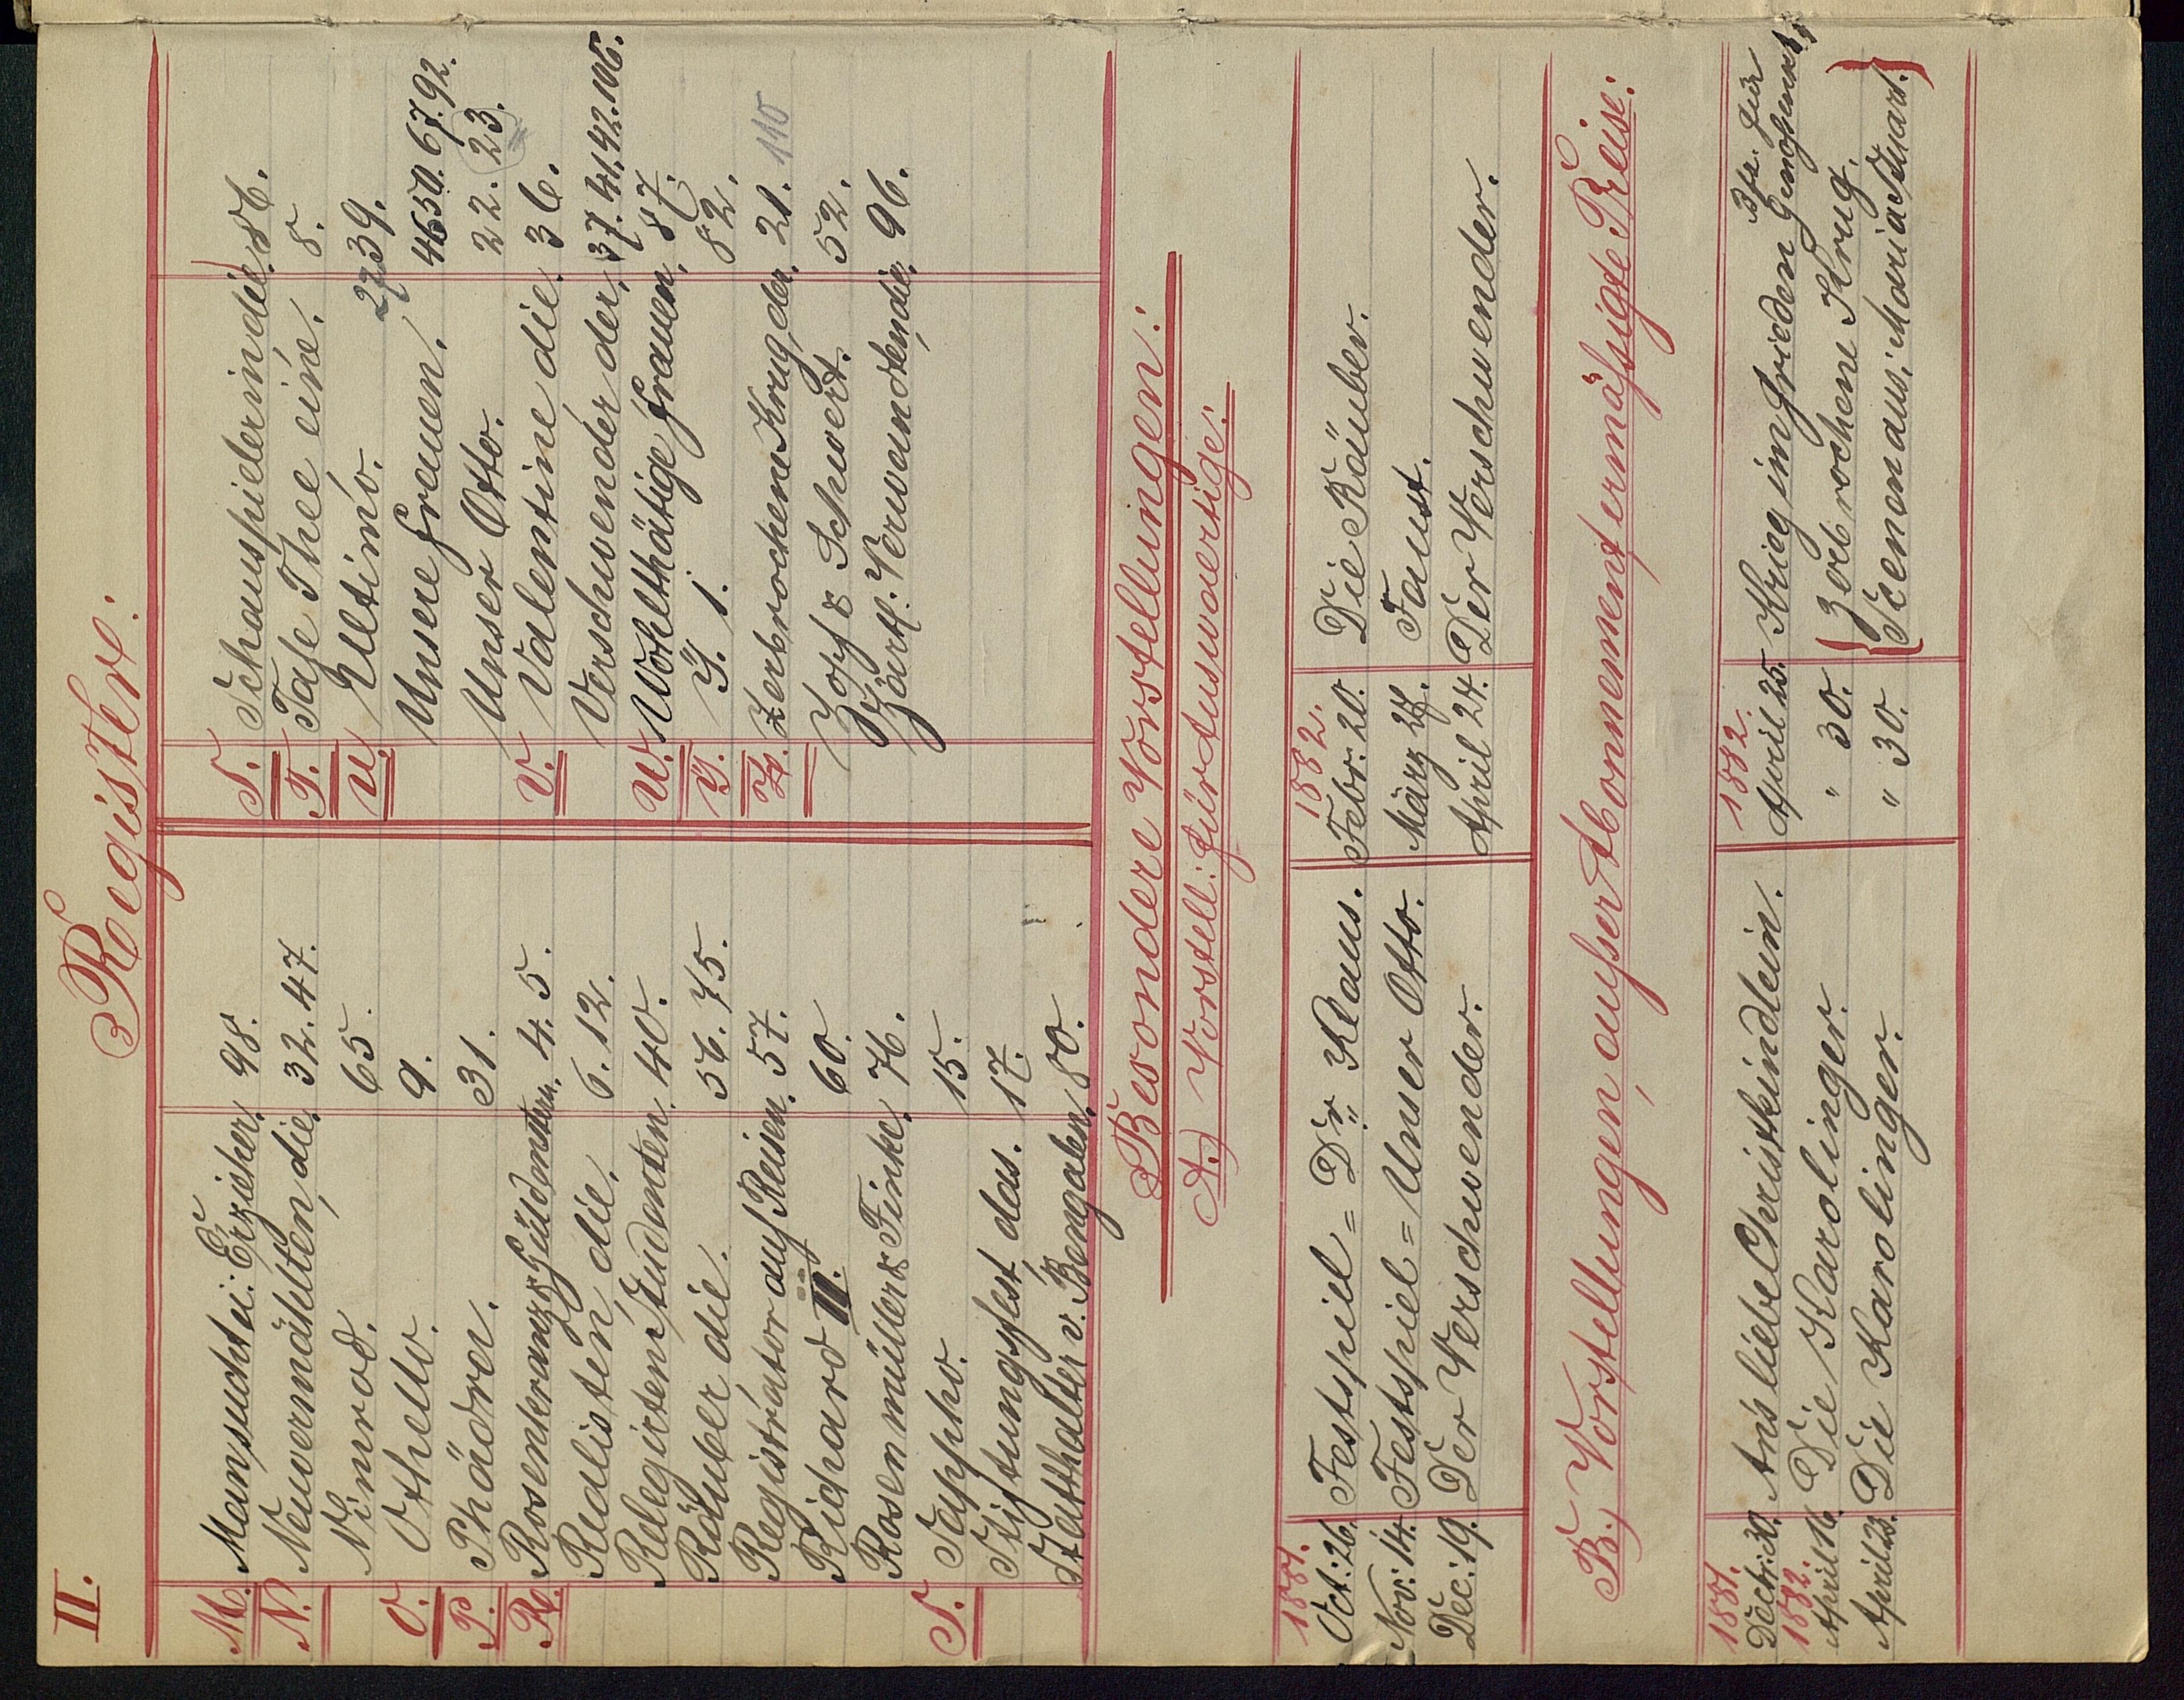 II.
Register:
M. Mannsuchtei: Erzieher. 98.
N. Neuvermählten, die. 32. 47.
Nimrod. 65.
O. Othello. 9.
P. Phädra. 31.
R. Rosenkranz & Güldenstern. 4. 5.
Realisten, die. 6. 12.
Relegirten Studenten. 40.
Räuber die. 56. 75.
Registrator auf Reisen. 57.
Richard II. 60.
Rosenmüller & Finke. 76.
S. Sappho. 15.
Stiftungsfest, das. 17.
Statthalter v. Bengalen. 80.
S. Schauspielerin die. 86.
T. Tasse Thee eine. 8.
U. Ultimo. 27 39.
Unsere Frauen. 46 50. 67. 92.
Unser Otto. 22. 23.
V. Valentine die. 36.
Verschwender der. 37. 41. 42. 106.
W. Wohlthätige Frauen. 87.
Y. Y. 1. 82.
Z. Zerbrochene Krug, der. 21. 110
Zopf & Schwert. 52.
Zärtl. Verwandten, die. 96.
Besondere Vorstellungen:
A.) Vorstell: für Auswaertige:
1881.
Oct: 26. Festspiel = Dr. Klaus.
Nov: 14. Festspiel = Unser Otto.
Dec: 19. Der Verschwender.
1882.
Febr. 20. Die Räuber.
März 27. Faust.
April 24. Der Verschwender.
B.) Vorstellungen, ausser Abonnement ermässigte Preise:
1881.
Decbr: 30. Ans liebe Christkindlein.
1882.
April 16. Die Karolinger.
April 23. Die Karolinger.
1882.
April 25. Krieg im Frieden für Genossensch.
" 30. Zerbrochene Krug.
" 30. Scenen aus: Maria Stuart.